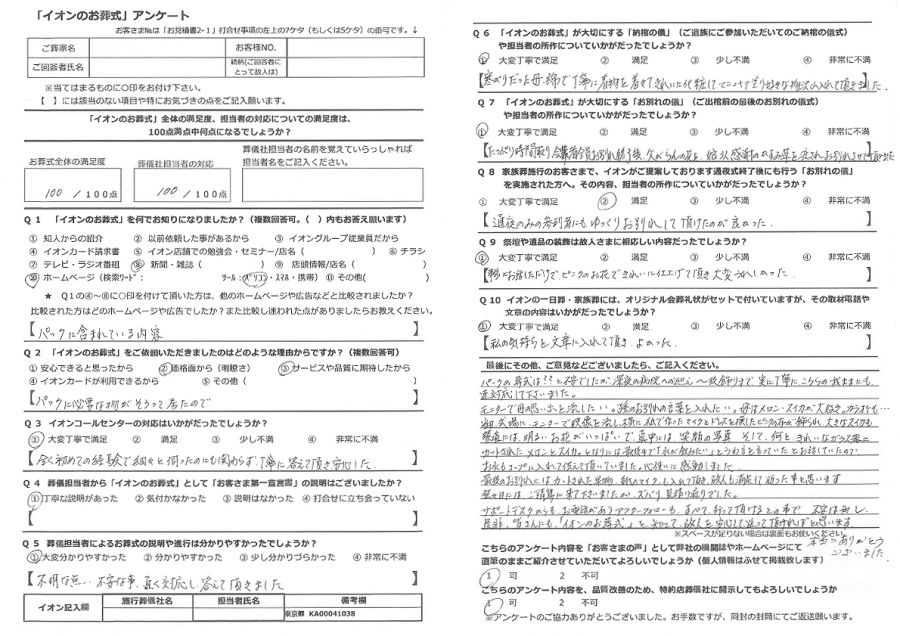 「イオンのお葬式」アンケート
お客さま№は「お見積書2-1」打合せ事項の左上の7ケタ(もしくは5ケタ)の番号です。↓
ご葬家名 お客様NO.
ご回答者氏名 続柄(ご回答者にとって故人は)
※当てはまるものに○印をお付け下さい。
【 】には該当のない項目や特にお気づきの点をご記入願います。
「イオンのお葬式」全体の満足度、担当者の対応についての満足度は、
100点満点中何点になるでしょうか?
お葬式全体の満足度 葬儀社担当者の対応
葬儀社担当者の名前を覚えていらっしゃれば
担当者名をご記入ください。
100 / 100点 100 / 100点
Q 1 「イオンのお葬式」を何でお知りになりましたか?(複数回答可。( )内もお答え願います)
① 知人からの紹介 ② 以前依頼した事があるから ③ イオングループ従業員だから
④ イオンカード請求書 ⑤ イオン店舗での勉強会・セミナー/店名( ) ⑥ チラシ
⑦ テレビ・ラジオ番組 ⑧ 新聞・雑誌( ) ⑨ 店頭情報/店名( )
⑩ ホームページ(検索ワード: ツール:パソコン・スマホ・携帯) ⑪ その他( )
★ Q1の④~⑧に○印を付けて頂いた方は、他のホームページや広告などと比較されましたか?
比較された方はどのホームページや広告でしたか?また比較し迷われた点がありましたらお教えください。
【パックに含まれている内容】
Q 2 「イオンのお葬式」をご依頼いただきましたのはどのような理由からですか?(複数回答可)
① 安心できると思ったから ② 価格面から(明瞭さ) ③ サービスや品質に期待したから
④ イオンカードが利用できるから ⑤ その他( )
【パックに必要な物がそろって居たので】
Q 3 イオンコールセンターの対応はいかがだったでしょうか?
① 大変丁寧で満足 ② 満足 ③ 少し不満 ④ 非常に不満
【全く初めての経験で細々と伺ったのにも関わらず、丁寧に答えて頂き安心した。】
Q 4 葬儀担当者から「イオンのお葬式」として「お客さま第一宣言書」の説明はございましたか?
① 丁寧な説明があった ② 気付かなかった ③ 説明はなかった ④ 打合せに立ち会っていない
【 】
Q 5 葬儀担当者によるお葬式の説明や進行は分かりやすかったでしょうか?
① 大変分かりやすかった ② 分かりやすかった ③ 少し分かりづらかった ④ 非常に不満
【不明な点、不安な事、直ぐ対応し答えて頂きました】
イオン記入欄 施行葬儀社名 担当者氏名 備考欄
東京都 KA00041038
Q 6 「イオンのお葬式」が大切にする「納棺の儀」(ご遺族にご参加いただいてのご納棺の儀式)
や担当者の所作についていかがだったでしょうか?
① 大変丁寧で満足 ② 満足 ③ 少し不満 ④ 非常に不満
【寒がりだった母、綿で丁寧に着物を着せてきれいに化粧して 好きな物沢山入れて頂きました】
Q 7 「イオンのお葬式」が大切にする「お別れの儀」(ご出棺前の最後のお別れの儀式)
や担当者の所作についていかがだったでしょうか?
① 大変丁寧で満足 ② 満足 ③ 少し不満 ④ 非常に不満
【たっぷり時間取り 会葬者全員お別れ終了後、お別れさせて頂けた】
Q 8 家族葬施行のお客さまで、イオンがご提案しております通夜式終了後にも行う「お別れの儀」
を実施された方へ。その内容、担当者の所作についていかがだったでしょうか?
① 大変丁寧で満足 ② 満足 ③ 少し不満 ④ 非常に不満
【通夜のみの参列者にもゆっくりお別れして頂けたのが良かった。】
Q 9 祭壇や遺品の装飾は故人さまに相応しい内容だったでしょうか?
① 大変丁寧で満足 ② 満足 ③ 少し不満 ④ 非常に不満
【ピンクのお花できれいに仕上げて頂き大変うれしかった。】
Q 10 イオンの一日葬・家族葬には、オリジナル会葬礼状がセットで付いていますが、その取材電話や
文章の内容はいかがだったでしょうか?
① 大変丁寧で満足 ② 満足 ③ 少し不満 ④ 非常に不満
【私の気持ちを文章に入れて頂き、よかった。】
最後にその他、ご意見などございましたら、ご記入ください。
パックの葬式は??と不安でしたが、深夜の病院へのお迎え~枕飾りまで実に丁寧に、こちらの我ままにも、
応対して下さいました。
モニターで母の思い出を流したい。孫のお別れの言葉を入れたい。母はメロン・スイカが大好き。カラオケも…
祭壇には、明るいお花がいっぱいで、真中には、笑顔の写真 そして、何と、きれいなガラス器に
カットされた メロンとスイカ。
お水もコップに入れて供えて頂いていました。心使いに感動しました。
最後のお別れには、カットされた果物、紙のマイクも入れて頂き 故人も満足して逝った事と思います
翌々日には、ご精算に来て下さいましたが、ズバリ 見積り通りでした。
サポートデスクからもお電話がありアフターフォローも、すべて、行って頂けるとの事で 不安は無し、
是非、皆さんにも「イオンのお葬式」を知って、故人を安心して送って頂ければと思います。
※スペースが足りない場合は裏面もお使いください。
本当にありがとうございました
こちらのアンケート内容を「お客さまの声」として弊社の機関誌やホームページにて
直筆のままご紹介させていただいてよろしいでしょうか(個人情報はふせて掲載致します)
1 可 2 不可
こちらのアンケート内容を、品質改善のため、特約店葬儀社に開示してもよろしいでしょうか
1 可 2 不可
※アンケートのご協力ありがとうございました。お手数ですが、同封の封筒にてご返送願います。